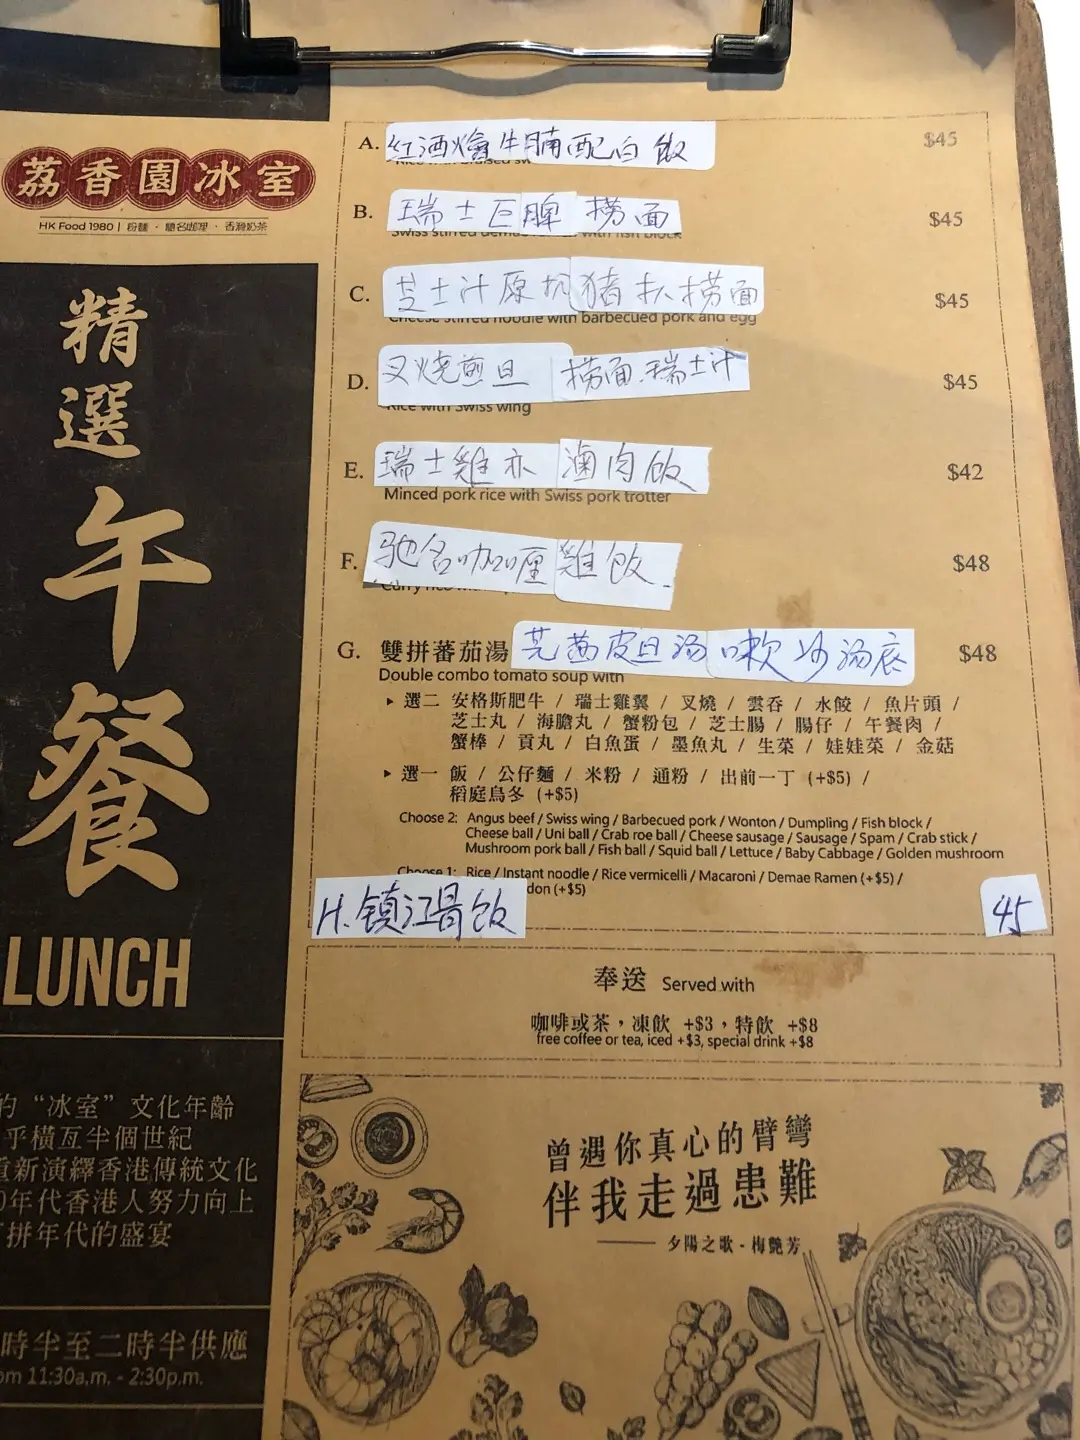 荔香園冰室
HK Food 1980 | 粉麵 · 馳名咖喱 · 香滑奶茶
精選午餐
LUNCH
的“冰室”文化年齡
乎橫亙半個世紀
重新演繹香港傳統文化
0年代香港人努力向上
拼年代的盛宴
時半至二時半供應
om 11:30a.m. - 2:30p.m.
A. 紅酒燴牛腩配白飯 $45
B. 瑞士巨脾 撈面 $45
Swiss stirred with fish block
C. 芝士汁原扒豬扒撈面 $45
Cheese stirred noodle with barbecued pork and egg
D. 叉燒煎旦 撈面.瑞士汁 $45
Rice with Swiss wing
E. 瑞士雞亦 滷肉飯 $42
Minced pork rice with Swiss pork trotter
F. 驰名咖喱雞飯. $48
Curry
G. 雙拼蕃茄湯 芫茜皮旦汤 嗽沙汤底 $48
Double combo tomato soup with
▸ 選二 安格斯肥牛 / 瑞士雞翼 / 叉燒 / 雲吞 / 水餃 / 魚片頭 /
芝士丸 / 海膽丸 / 蟹粉包 / 芝士腸 / 腸仔 / 午餐肉 /
蟹棒 / 貢丸 / 白魚蛋 / 墨魚丸 / 生菜 / 娃娃菜 / 金菇
▸ 選一 飯 / 公仔麵 / 米粉 / 通粉 / 出前一丁 (+$5) /
稻庭烏冬 (+$5)
Choose 2: Angus beef / Swiss wing / Barbecued pork / Wonton / Dumpling / Fish block /
Cheese ball / Uni ball / Crab roe ball / Cheese sausage / Sausage / Spam / Crab stick /
Mushroom pork ball / Fish ball / Squid ball / Lettuce / Baby Cabbage / Golden mushroom
Choose 1: Rice / Instant noodle / Rice vermicelli / Macaroni / Demae Ramen (+$5) /
don (+$5)
H. 镇江骨饭 45
奉送 Served with
咖啡或茶，凍飲 +$3，特飲 +$8
free coffee or tea, iced +$3, special drink +$8
曾遇你真心的臂彎
伴我走過患難
—— 夕陽之歌 - 梅艷芳